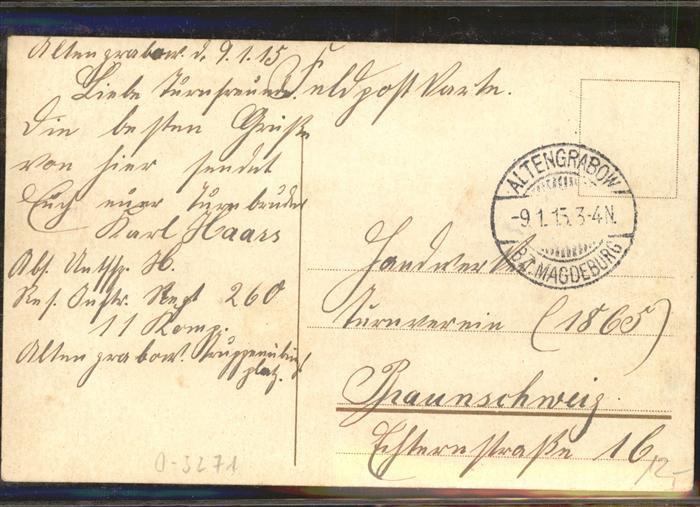 Altengrabow. d. 9.1.15
Liebe Turnfreunde.
Die besten Grüße
von hier sendet
Euch euer Turnbruder
Karl Haars
Abs. Untffz. H.
Res. Inftr. Regt 260
11 Komp.
Altengrabow. Truppenübungs
platz.
Feldpostkarte.
ALTENGRABOW
-9.1.15.3-4N.
BZ. MAGDEBURG
Handwerker
Turnverein (1865)
Braunschweig.
Echternstraße 16
0-3271
12,-